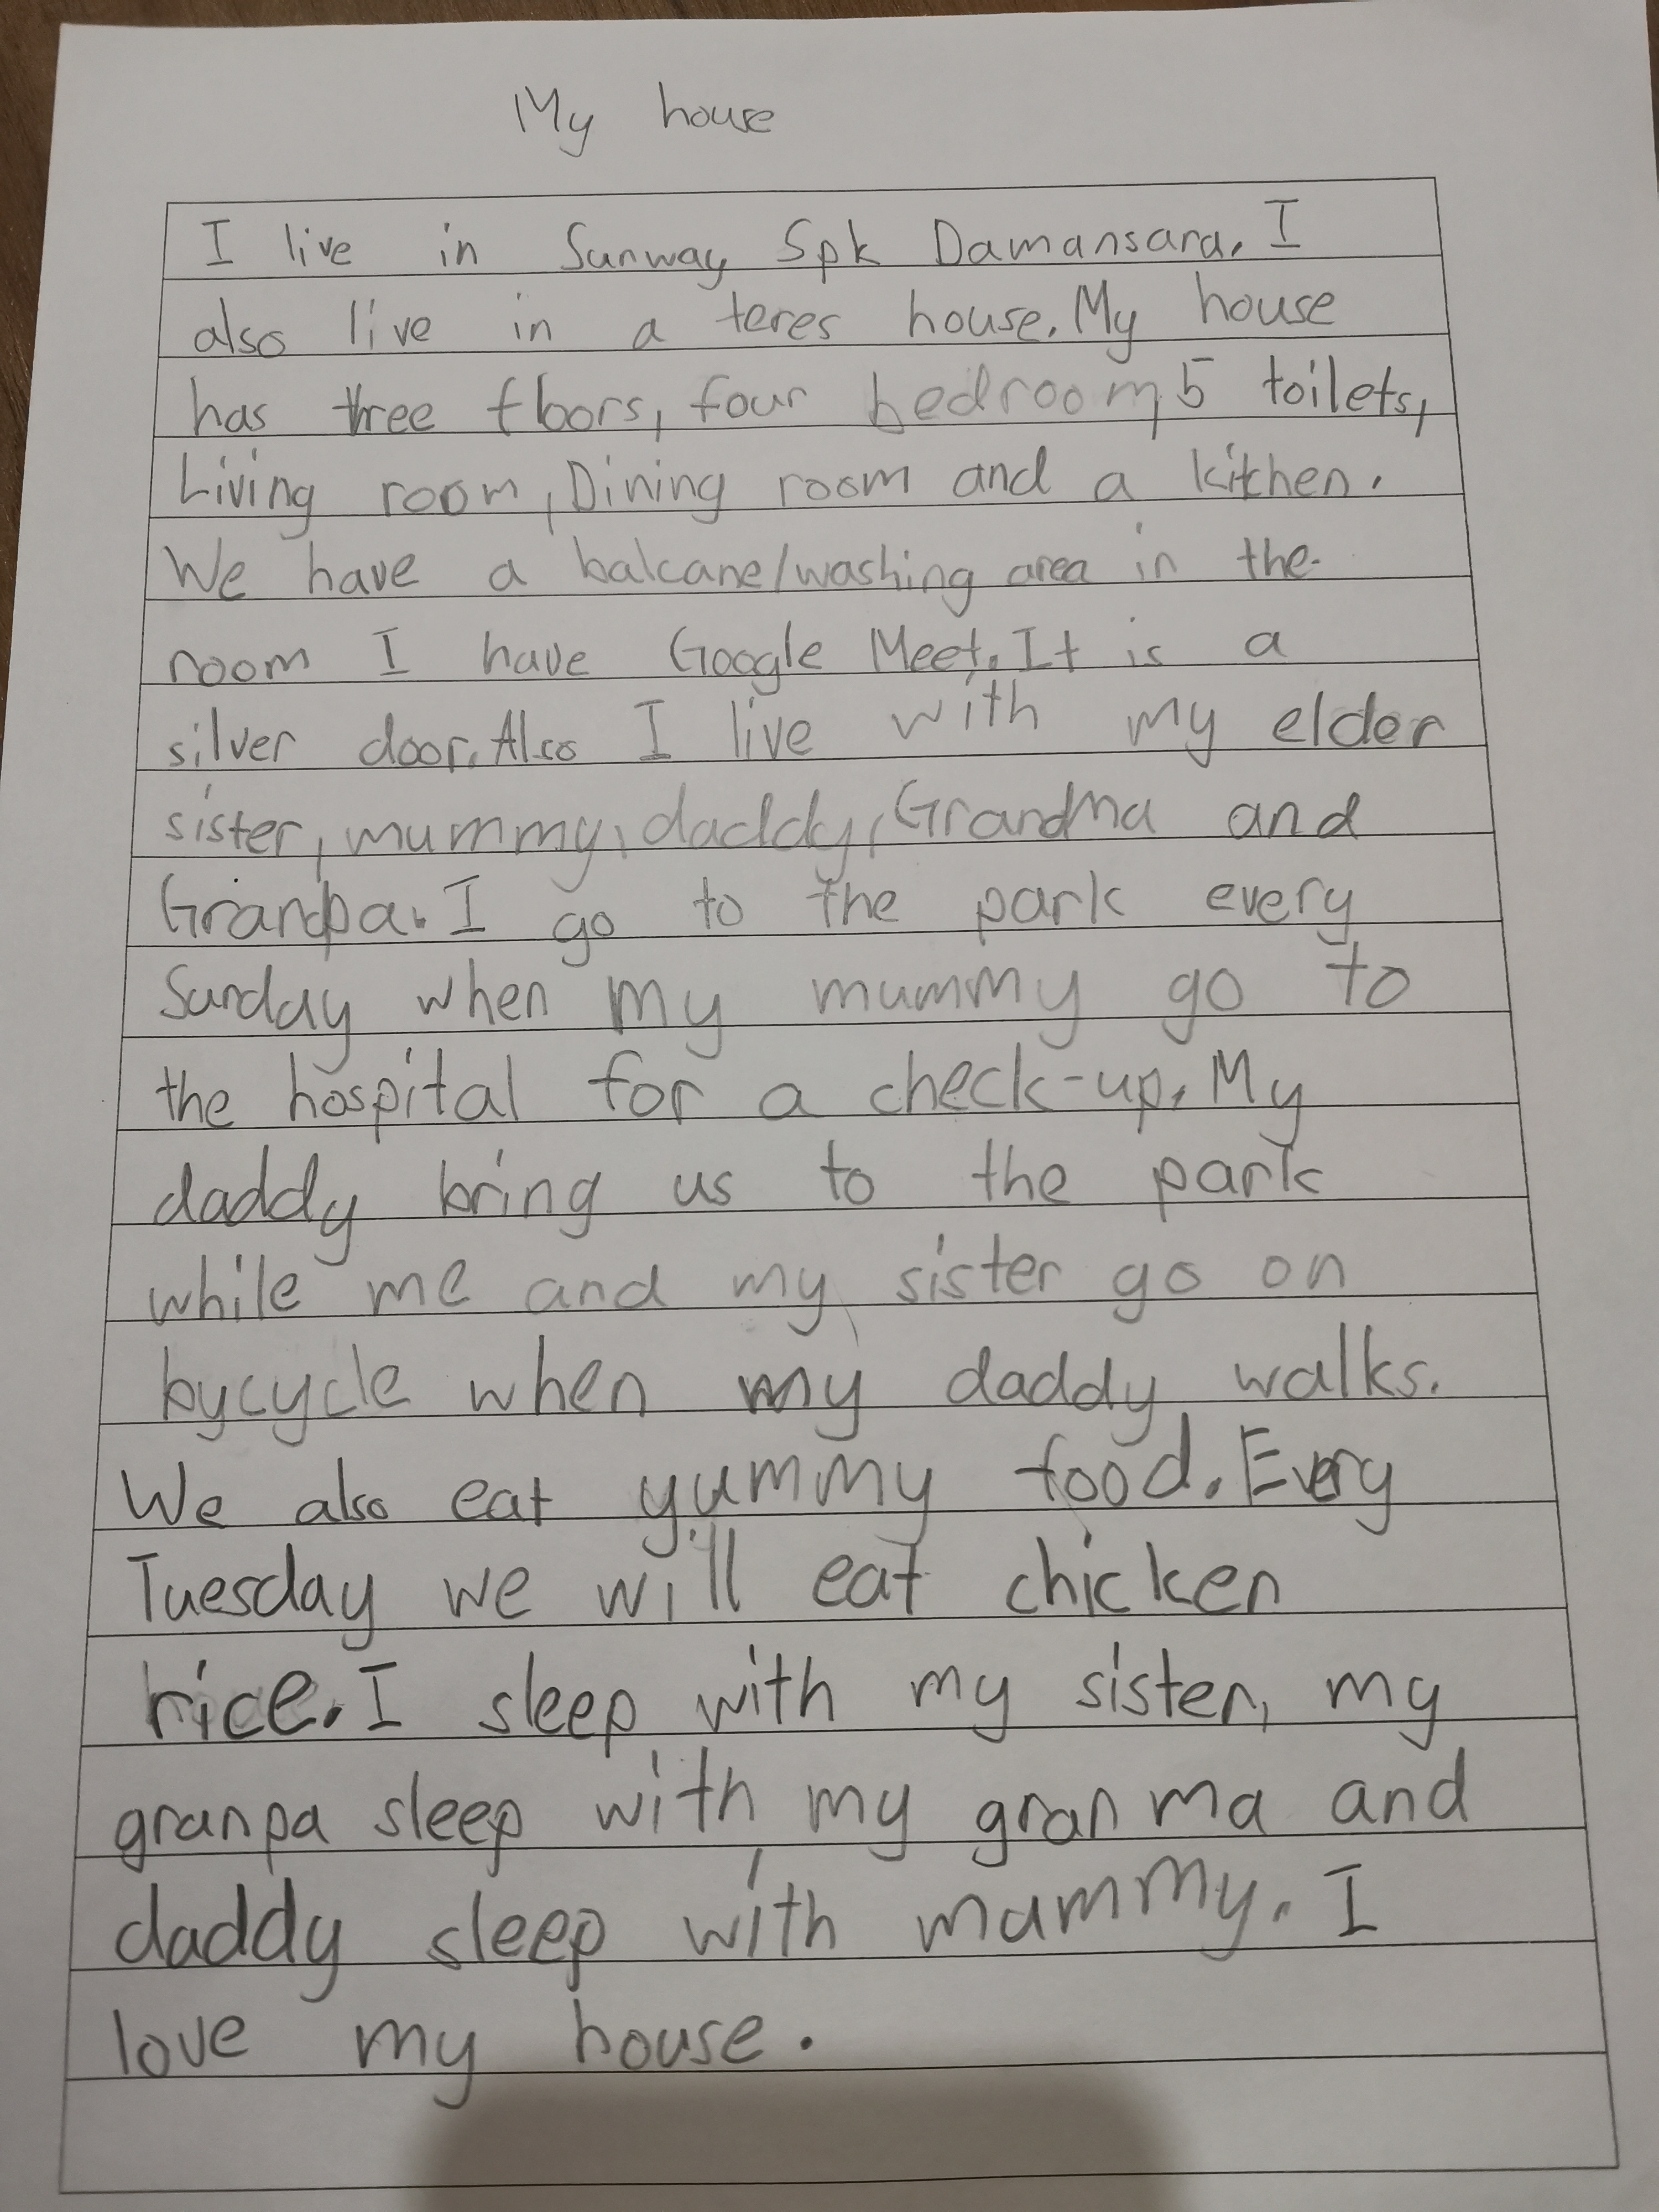 My house
I live in Sunway Spk Damansara. I
also live in a teres house. My house
has three floors, four bedroom, 5 toilets,
Living room, Dining room and a kitchen.
We have a balcane/washing area in the
room I have Google Meet. It is a
silver door. Also I live with my elder
sister, mummy, daddy, Grandma and
Grandpa. I go to the park every
Sunday when my mummy go to
the hospital for a check-up. My
daddy bring us to the park
while me and my sister go on
bycycle when my daddy walks.
We also eat yummy food. Every
Tuesday we will eat chicken
rice. I sleep with my sister, my
granpa sleep with my granma and
daddy sleep with mummy. I
love my house.